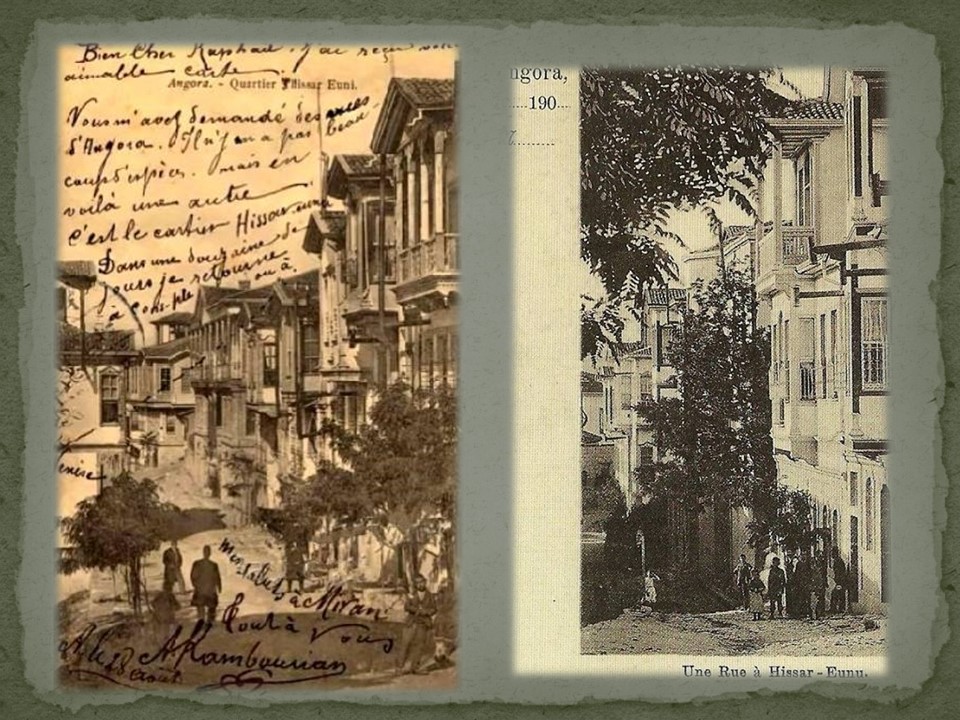 Bien Cher Raphael. J'ai reçu votre
aimable carte
Angora. - Quartier Hissar Euni.
Vous m'avez demandé des
d'Angora. Il n'y en a pas beau
coup d'espèces. mais en
voilà une autre
c'est le cartier Hissar euni
Dans une douzaine de
jours je retourne
à
Mes saluts à Mivan
Tout à Vous
A Kambourian
18 Aout
ngora,
190
Une Rue à Hissar-Eunu.